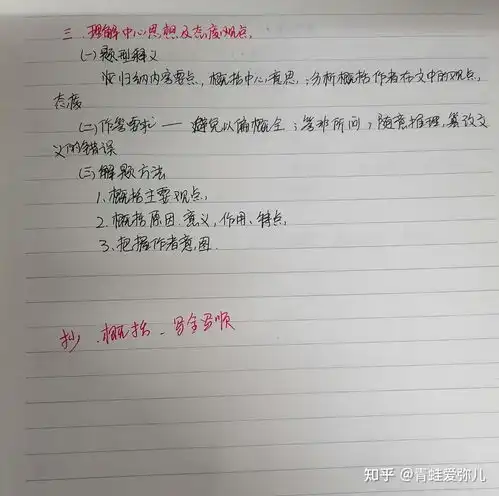 三、理解中心思想及态度观点
(一)题型释义
归纳内容要点,概括中心意思;分析概括作者在文中的观点,
态度
(二)作答要求——避免以偏概全;答非所问;随意推理,篡改文
义的错误
(三)解题方法
1.概括主要观点,
2.概括原因.意义,作用、特点,
3.把握作者意图.
抄、概括、写全写顺
知乎 @青蛙爱弥儿